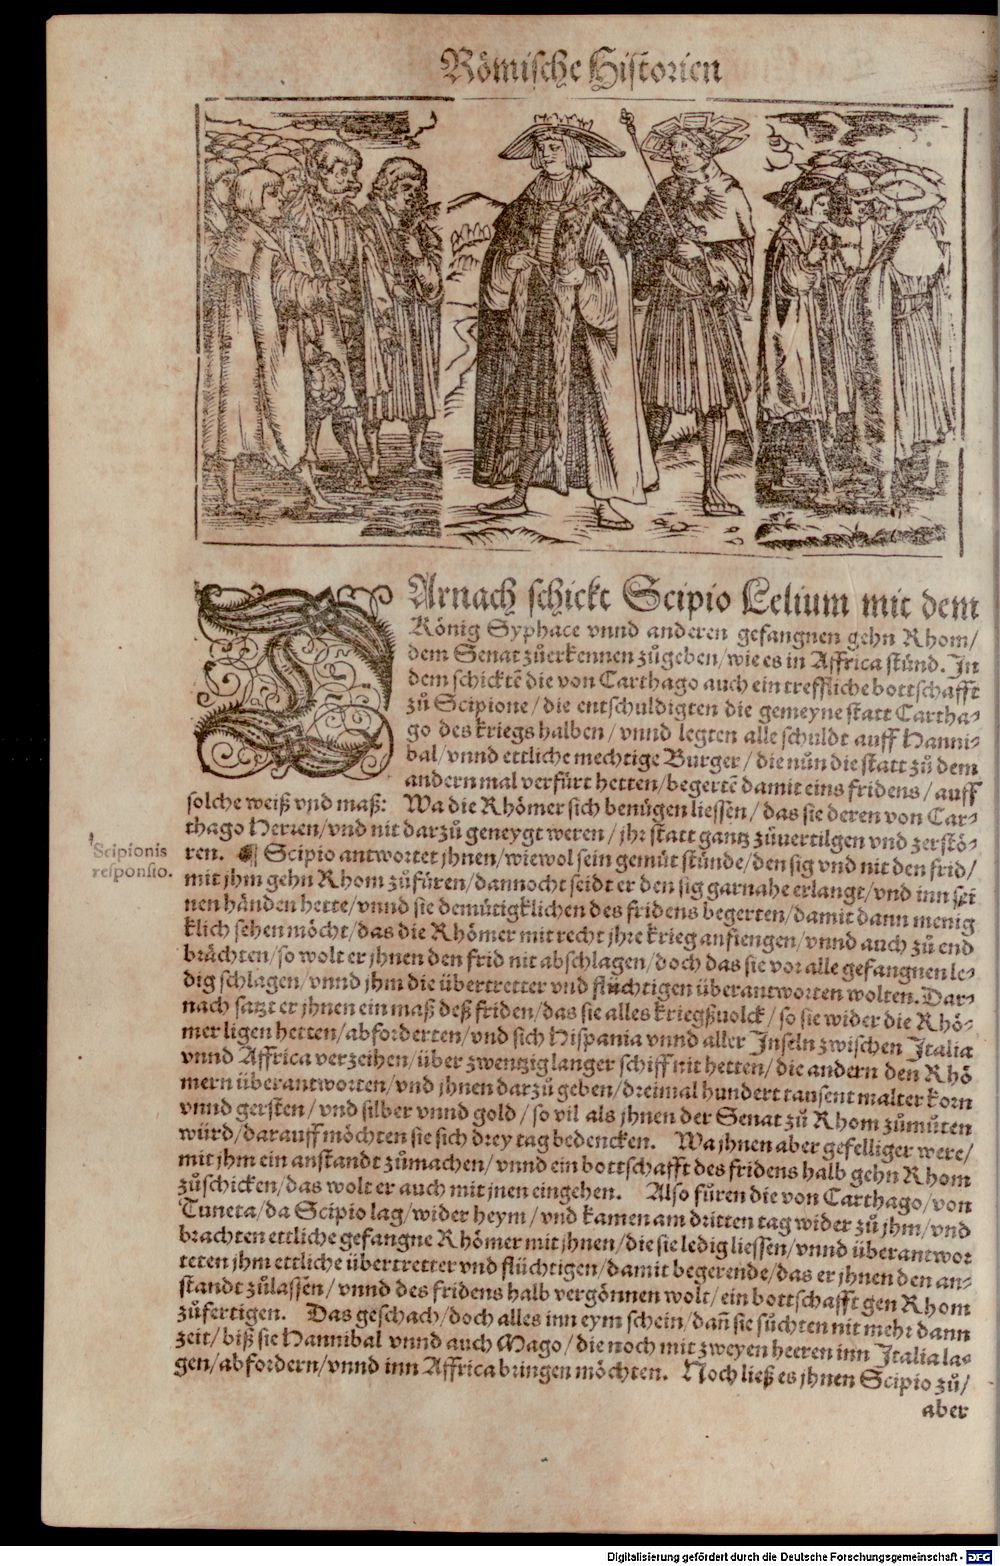 Römische Historien
DArnach schickt Scipio Lelium mit dem
König Syphace vnnd anderen gefangnen gehn Rhom/
dem Senat zůerkennen zůgeben/wie es in Affrica stůnd. In
dem schicktē die von Carthago auch ein treffliche bottschafft
zů Scipione/die entschuldigten die gemeyne statt Cartha-
go des kriegs halben/vnnd legten alle schuldt auff Hanni-
bal/vnnd ettliche mechtige Burger/die nůn die statt zů dem
andern mal verfürt hetten/begertē damit eins fridens/auff
solche weiß vnd maß: Wa die Rhömer sich benügen liessen/das sie deren von Car-
thago Herren/vnd nit darzů geneygt weren/jhr statt gantz zůuertilgen vnd zerstö-
ren. Scipio antwortet jhnen/wiewol sein gemůt stünde/den sig vnd nit den frid/
Scipionis
responsio.
mit jhm gehn Rhom zůfüren/dannocht seidt er den sig garnahe erlangt/vnd inn sei
nen hånden hette/vnnd sie demůtigklichen des fridens begerten/damit dann menig
klich sehen möcht/das die Rhömer mit recht jhre krieg anfiengen/vnnd auch zů end
bråchten/so wolt er jhnen den frid nit abschlagen/doch das sie vor alle gefangnen le-
dig schlagen/vnnd jhm die übertretter vnd flüchtigen überantworten wolten. Dar-
nach satzt er jhnen ein maß deß friden/das sie alles kriegßuolck/so sie wider die Rhö-
mer ligen hetten/abforderten/vnd sich Hispania vnnd aller Inseln zwischen Italia
vnnd Affrica verzeihen/über zwentzig langer schiff nit hetten/die andern den Rhö
mern überantworten/vnd jhnen darzů geben/dreimal hundert tausent malter korn
vnnd gersten/vnd silber vnnd gold/so vil als jhnen der Senat zů Rhom zůmůten
würd/darauff möchten sie sich drey tag bedencken. Wa jhnen aber gefelliger were/
mit jhm ein anstandt zůmachen/vnnd ein bottschafft des fridens halb gehn Rhom
zůschicken/das wolt er auch mit jnen eingehen. Also fůren die von Carthago/von
Tuneta/da Scipio lag/wider heym/vnd kamen am dritten tag wider zů jhm/vnd
brachten ettliche gefangne Rhömer mit jhnen/die sie ledig liessen/vnnd überantwor
teten jhm ettliche übertretter vnd flüchtigen/damit begerende/das er jhnen den an-
standt zůlassen/vnnd des fridens halb vergönnen wolt/ein bottschafft gen Rhom
zůfertigen. Das geschach/doch alles inn eym schein/dañ sie sůchten nit mehr dann
zeit/biß sie Hannibal vnnd auch Mago/die noch mit zweyen heeren inn Italia la-
gen/abfordern/vnnd inn Affrica bringen möchten. Noch ließ es jhnen Scipio zů/
aber
Digitalisierung gefördert durch die Deutsche Forschungsgemeinschaft - DFG